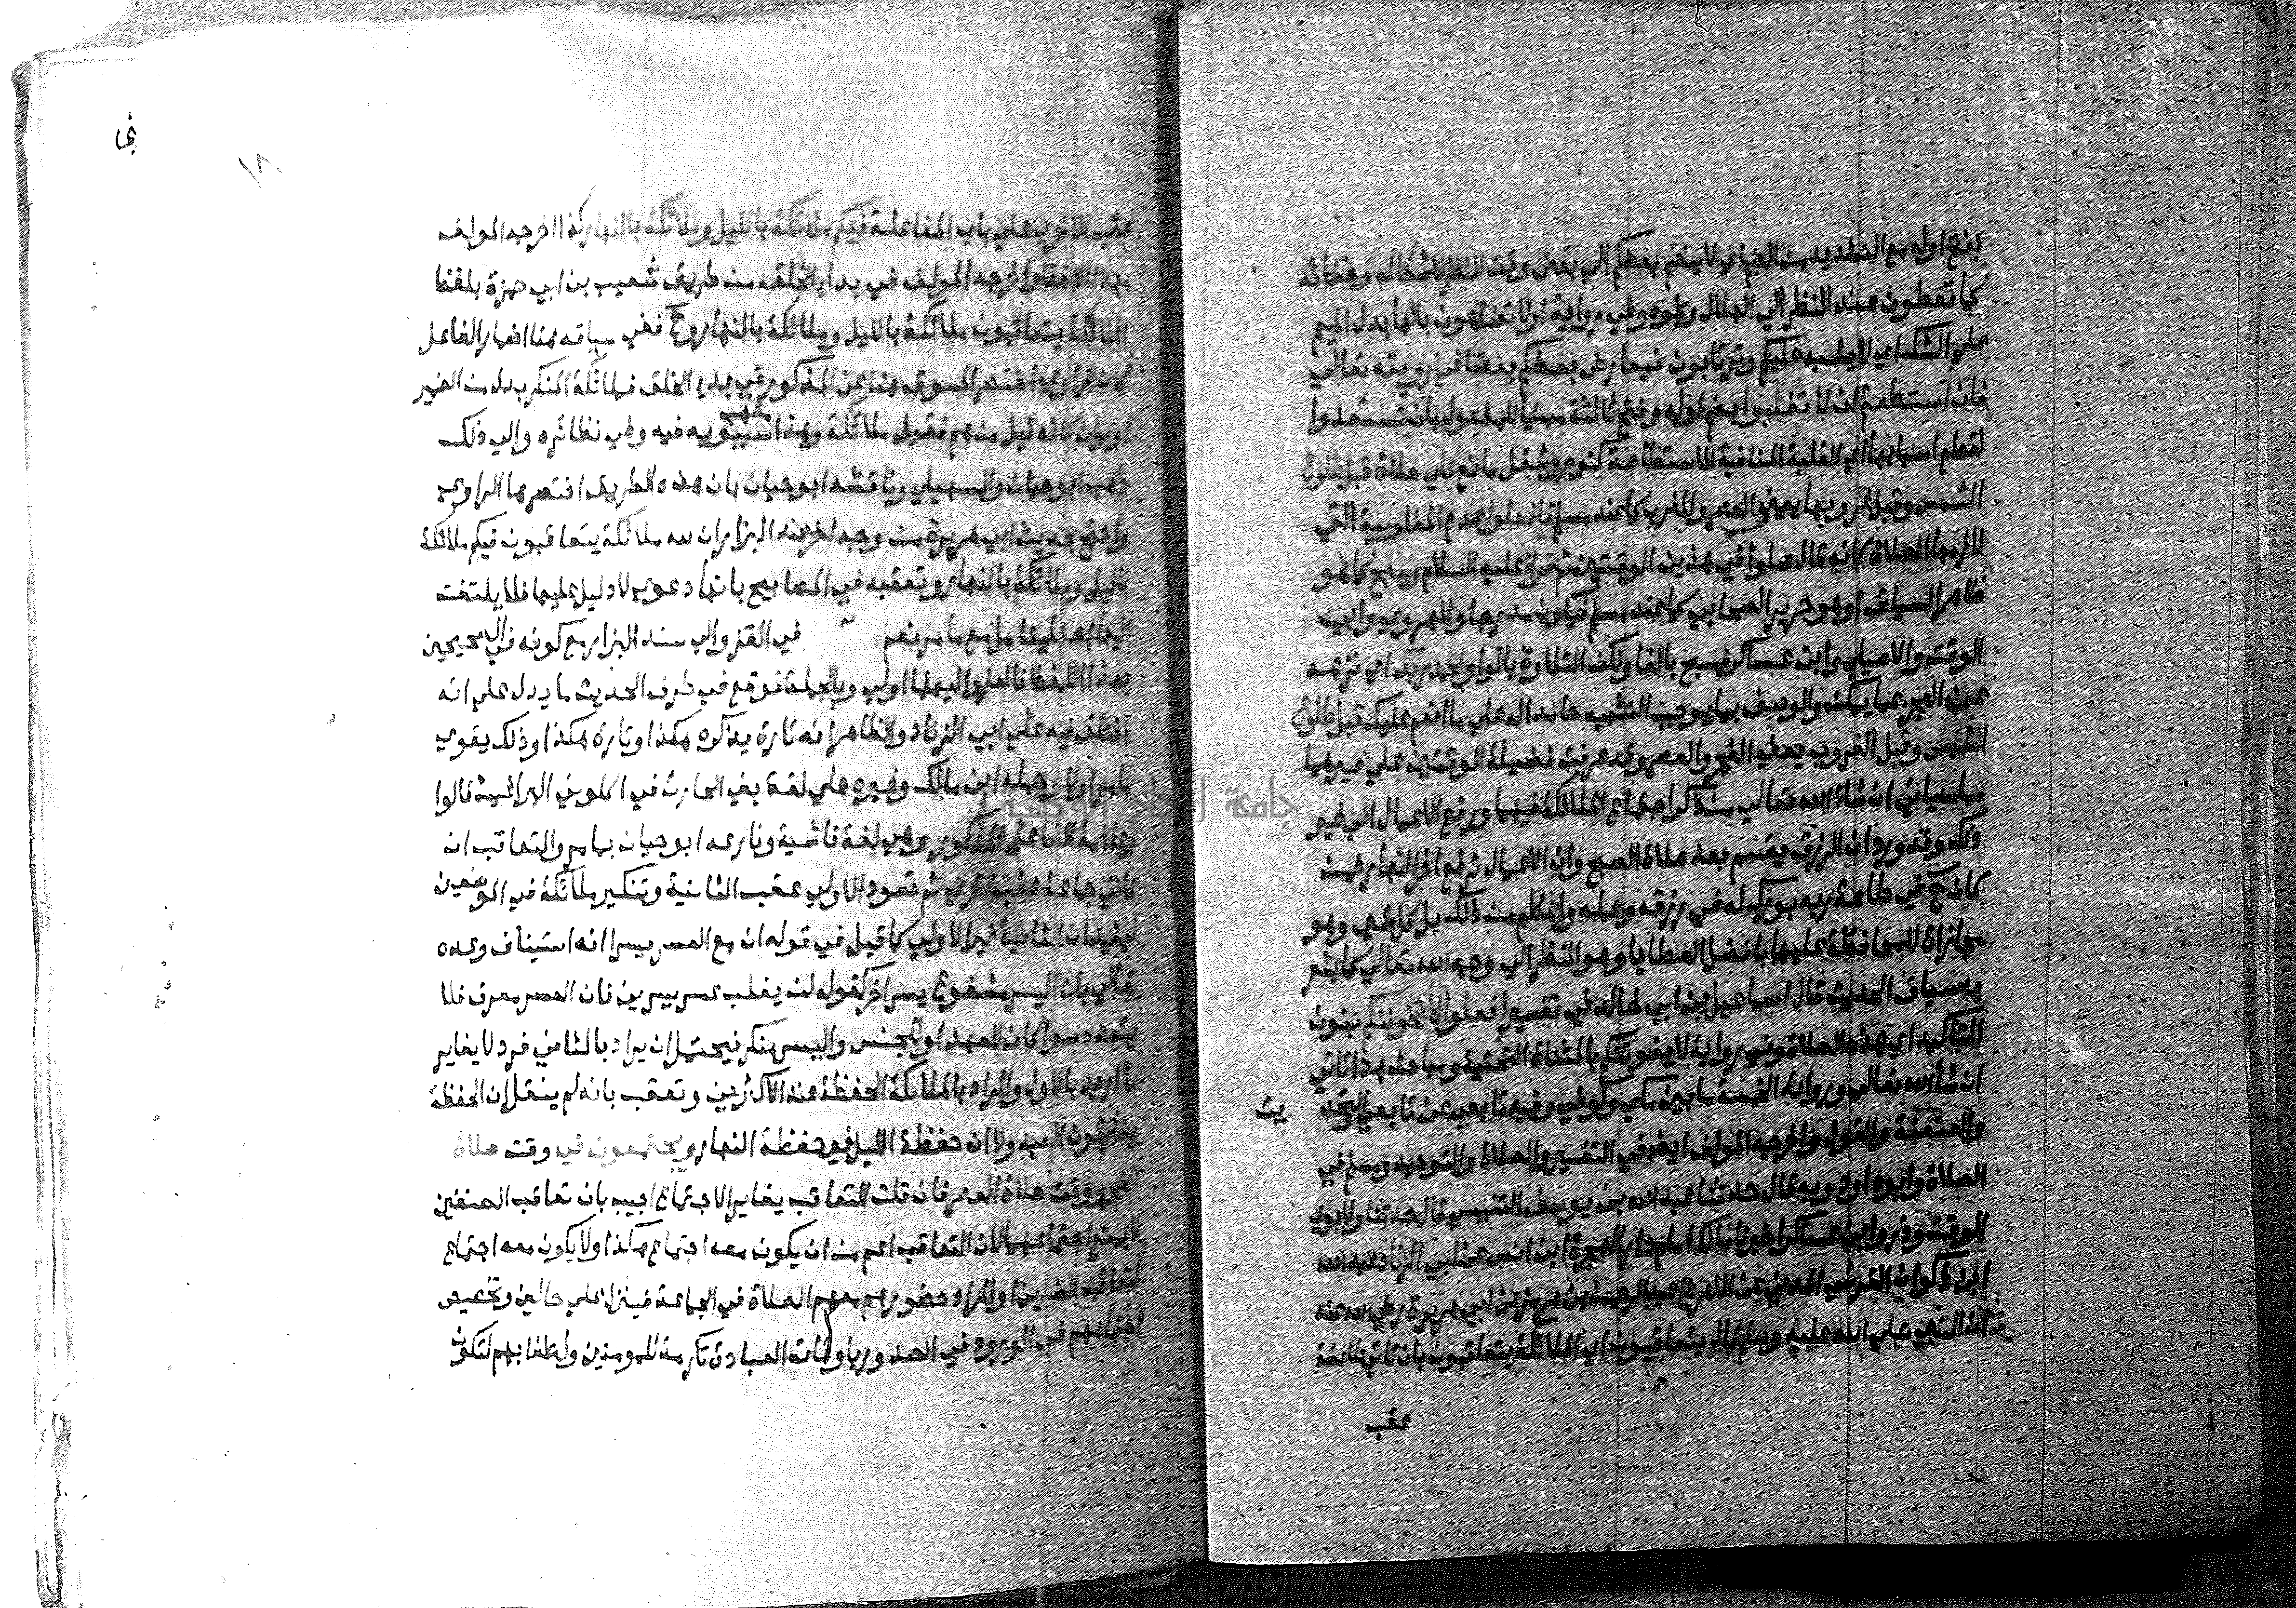 بفتح اوله مع التشديد من الضم اي لا ينضم بعضكم الي بعض وقت النظر لاشكاله وخفائه
كما تفعلون عند النظر الي الهلال ونحوه وفي رواية اولا تضاهون بالها بدل الميم
علي الشك اي لا يشتبه عليكم وترتابون فيعارض بعضكم بعضا في رويته تعالي
فان استطعتم ان لا تغلبوا بضم اوله وفتح ثالثة مبنيا للمفعول بان تستعدوا
لقطع اسبابها اي الغلبة المنافية للاستطاعة كنوم وشغل مانع علي صلاة قبل طلوع
الشمس وقبل غروبها يعني العصر والفجر كما عند مسلم فافعلوا عدم المغلوبية التي
لازمها الصلاة كانه قال صلوا في هذين الوقتين ثم قرا عليه السلام وسبح كما هو
ظاهر السياق او هو جرير الصحابي كما عند مسلم فيكون مدرجا وللهروي وابي
الوقت والاصيلي وابن عساكر فسبح بالفا ولكن التلاوة بالواو بحمد ربك اي نزهه
عن العجز عما يمكن والوصف بما يوجب التشبيه حامدا له علي ما انعم عليك قبل طلوع
الشمس وقبل الغروب يعني الفجر والعصر وقد عرفت فضيلة الوقتين علي غيرهما
مما سياتي ان شاء الله تعالي من ذكر اجتماع الملائكة فيهما ورفع الاعمال الي غير
ذلك وقد ورد ان الرزق يقسم بعد صلاة الصبح وان الاعمال ترفع اخر النهار فمن
كان ح في طاعة ربه بورك له في رزقه وعمله واعظم من ذلك بل كل شي وهو
مجازاة المحافظة عليهما بافضل العطايا وهو النظر الي وجه الله تعالي كما يشعر
به سياق الحديث قال اسماعيل بن ابي خالد في تفسير افعلوا لا تفوتنكم بنون
التاكيد اي هذه الصلاة وفي رواية لا يفوتنكم بالمثناة التحتية ومباحث هذا تاتي
ان شاء الله تعالي ورواته الخمسة ما بين مكي وكوفي وفيه تابعي عن تابعي والتحد
يث
والعنعنة والقول واخرجه المولف ايضا في التفسير والصلاة والتوحيد ومسلم في
الصلاة وابو داود وبه قال حدثنا عبد الله بن يوسف التنيسي قال حدثنا ولابوي
الوقت وذر وابن عساكر اخبرنا مالك امام دار الهجرة ابن انس عن ابي الزناد عبد الله
ابن ذكوان القرشي المدني عن الاعرج عبد الرحمن بن هرمز عن ابي هريرة رضي الله عنه
ان النبي صلي الله عليه وسلم قال يتعاقبون اي الملائكة يتعاقبون بان تاتي طائفة
عقب
١٨
عقب الاخري علي باب المفاعلة فيكم ملائكة بالليل وملائكة بالنهار كذا اخرجه المولف
بهذا اللفظ واخرجه المولف في بداء الخلق من طريق شعيب بن ابي حمزة بلفظ
الملائكة يتعاقبون ملائكة بالليل وملائكة بالنهار وح ففي سياقه هنا اضمار الفاعل
كان الراوي اختصر المسوق هنا عن المذكور في بدء الخلق فملائكة المنكر بدل من الضمير
او بيان كانه قيل من هم فقيل ملائكة وهذا مذهب سيبويه فيه وفي نظائره والي ذلك
ذهب ابو حيان والسهيلي وناقشه ابو حيان بان هذه الطريق اختصرها الراوي
واحتج بحديث ابي هريرة من وجه اخر عند البزار ان لله ملائكة يتعاقبون فيكم ملائكة
بالليل وملائكة بالنهار وتعقبه في المصابيح بانها دعوي لا دليل عليها فلا يلتفت
اليها اهـ فليتامل مع ما مر نعم في القزو الي مسند البزار مع كونه في الصحيحين
بهذا اللفظ فالعزو اليهما اولي وبالجملة فوقع في طرق الحديث ما يدل علي انه
اختلف فيه علي ابي الزناد والظاهر انه تارة يذكره هكذا وتارة هكذا وذلك يقوي
ما مر اولا وحمله ابن مالك وغيره علي لغة بني الحارث في اكلوني البراغيث قالوا
وعلامة الفاعل المذكور وهي لغة فاشية ونازعه ابو حيان بما مر والتعاقب ان
تاتي جماعة عقب اخري ثم تعود الاولي عقب الثانية وتنكير ملائكة في الموضعين
ليفيد ان الثانية غير الاولي كما قيل في قوله ان مع العسر يسرا انه استيناف وعده
تعالي بان اليسر مشفوع بيسر اخر لقوله لن يغلب عسر يسرين فان العسر معرف فلا
يتعدد سوا كان للعهد او للجنس واليسر منكر فيحتمل ان يراد بالثاني فرد لا يغاير
ما اريد بالاول والمراد بالملائكة الحفظة عند الاكثرين وتعقب بانه لم ينقل ان الحفظة
يفارقون العبد ولا ان حفظة الليل غير حفظة النهار ويجتمعون في وقت صلاة
الفجر ووقت صلاة العصر فان قلت التعاقب يغاير الاجتماع اجيب بان تعاقب الصنفين
لا يمنع اجتماعهما لان التعاقب اعم من ان يكون معه اجتماع هكذا او لا يكون معه اجتماع
كتعاقب الضدين او المراد حضورهم معهم الصلاة في الجماعة فينزل علي حالين وتخصيص
اجتماعهم في الورود في الصدور باوقات العبادة تكرمة للمومنين ولطفا بهم لتكون